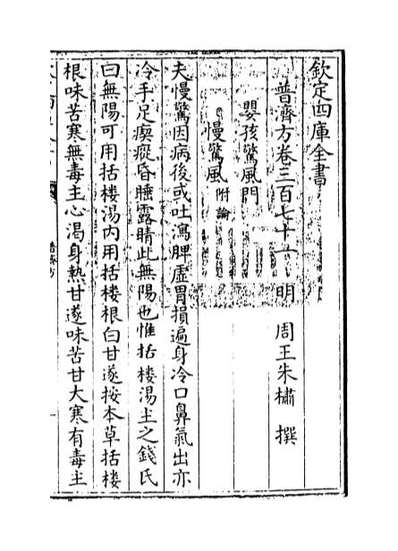 欽定四庫全書
普濟方卷三百七十一 明 周王朱橚 撰
嬰孩驚風門
慢驚風附論
夫慢驚因病後或吐瀉脾虛胃損遍身冷口鼻氣出亦
冷手足瘈瘲昏睡露睛此無陽也惟括樓湯主之錢氏
曰無陽可用括樓湯内用括樓根白甘遂按本草括樓
根味苦寒無毒主心渴身熱甘遂味苦甘大寒有毒主